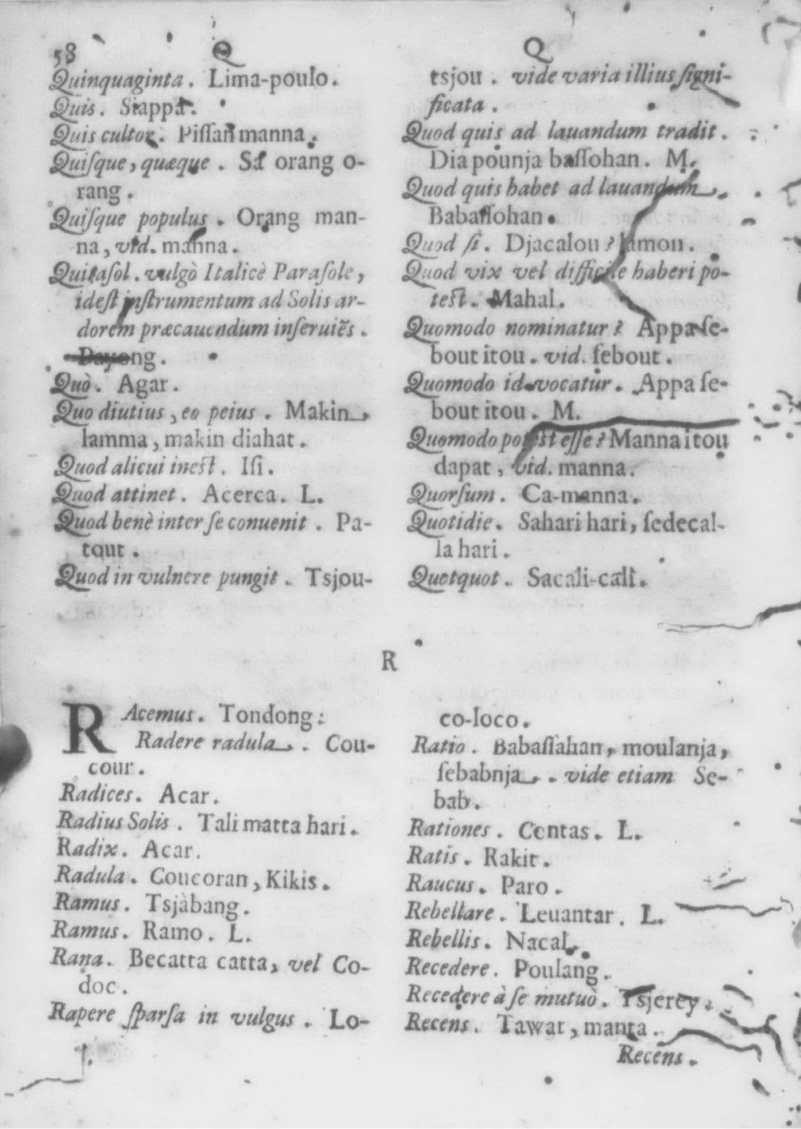 58 Q
Quinquaginta. Lima-poulo.
Quis. Siappa.
Quis cultor. Pissan manna.
Quisque, quæque. Sa orang o-
rang.
Quisque populus. Orang man-
na, vid. manna.
Quitasol. vulgò Italicè Parasole,
idest instrumentum ad Solis ar-
dorem præcauendum inseruiēs.
Payong.
Quò. Agar.
Quo diutius, eo peius. Makin
lamma, makin diahat.
Quod alicui inest. Isi.
Quod attinet. Acerca. L.
Quod benè inter se conuenit. Pa-
tout.
Quod in vulnere pungit. Tsjou-
Q
tsjou. vide varia illius signi-
ficata.
Quod quis ad lauandum tradit.
Dia pounja bassohan. M.
Quod quis habet ad lauandum.
Babassohan.
Quod si. Djacalou? lamon.
Quod vix vel difficile haberi po-
test. Mahal.
Quomodo nominatur? Appa se-
bout itou. vid. sebout.
Quomodo id vocatur. Appa se-
bout itou. M.
Quomodo potest esse? Manna itou
dapat, vid. manna.
Quorsum. Ca-manna.
Quotidie. Sahari hari, sedecal-
la hari.
Quotquot. Sacali-cali.
R
RAcemus. Tondong.
Radere radula. Cou-
cour.
Radices. Acar.
Radius Solis. Tali matta hari.
Radix. Acar.
Radula. Coucoran, Kikis.
Ramus. Tsjabang.
Ramus. Ramo. L.
Rana. Becatta catta, vel Co-
doc.
Rapere sparsa in vulgus. Lo-
co-loco.
Ratio. Babassahan, moulanja,
sebabnja. vide etiam Se-
bab.
Rationes. Contas. L.
Ratis. Rakit.
Raucus. Paro.
Rebellare. Leuantar. L.
Rebellis. Nacal.
Recedere. Poulang.
Recedere à se mutuò. Tsjerey.
Recens. Tawar, manta.
Recens.